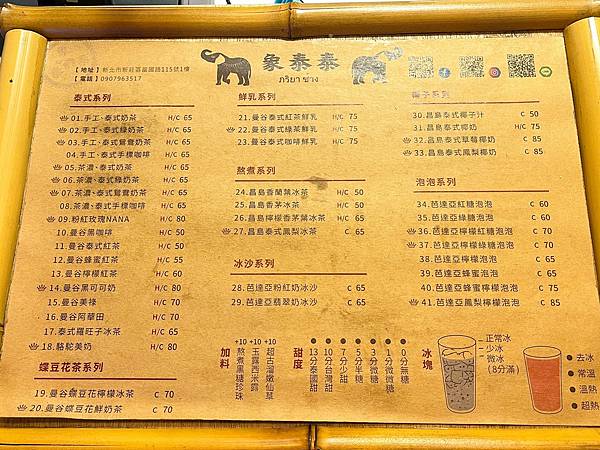 【地址】新北市新莊區富國路115號1樓
【電話】0907963517
象泰泰
泰式系列
01.手工、泰式奶茶 H/C 65
02.手工、泰式綠奶茶 H/C 65
03.手工、泰式鴛鴦奶茶 H/C 65
04.手工、泰式手標咖啡 H/C 65
05.茶濃、泰式奶茶 H/C 65
06.茶濃、泰式綠奶茶 H/C 65
07.茶濃、泰式鴛鴦奶茶 H/C 65
08.茶濃、泰式手標咖啡 H/C 65
09.粉紅玫瑰NANA H/C 80
10.曼谷黑咖啡 H/C 50
11.曼谷泰式紅茶 H/C 50
12.曼谷蜂蜜紅茶 H/C 55
13.曼谷檸檬紅茶 H/C 60
14.曼谷黑可可奶 H/C 80
15.曼谷美祿 H/C 70
16.曼谷阿華田 H/C 70
17.泰式羅旺子冰茶 H/C 65
18.駱駝美奶 H/C 80
蝶豆花茶系列
19.曼谷蝶豆花檸檬冰茶 C 70
20.曼谷蝶豆花鮮奶茶 C 70
鮮乳系列
21.曼谷泰式紅茶鮮乳 H/C 75
22.曼谷泰式綠茶鮮乳 H/C 75
23.曼谷泰式咖啡鮮乳 H/C 75
熬煮系列
24.昌島香蘭葉冰茶 H/C 50
25.昌島香茅冰茶 H/C 50
26.昌島檸檬香茅葉冰茶 H/C 65
27.昌島泰式鳳梨冰茶 C 65
冰沙系列
28.芭達亞粉紅奶冰沙 C 65
29.芭達亞翡翠奶冰沙 C 65
椰子系列
30.昌島泰式椰子汁 C 50
31.昌島泰式椰奶 H/C 75
32.昌島泰式草莓椰奶 C 85
33.昌島泰式鳳梨椰奶 C 85
泡泡系列
34.芭達亞紅糖泡泡 C 60
35.芭達亞綠糖泡泡 C 60
36.芭達亞檸檬紅糖泡泡 C 70
37.芭達亞檸檬綠糖泡泡 C 70
38.芭達亞檸檬泡泡 C 65
39.芭達亞蜂蜜泡泡 C 65
40.芭達亞蜂蜜檸檬泡泡 C 75
41.芭達亞鳳梨檸檬泡泡 C 85
加料
+10 熬煮黑糖珍珠
+10 玉露西米露
+10 超古溜嫩仙草
甜度
13分泰國甜
10分台灣甜
7分少甜
5分半糖
3分微糖
1分微微糖
0分無糖
冰塊
正常冰
少冰
微冰
(8分滿)
去冰
常溫
溫熱
超熱